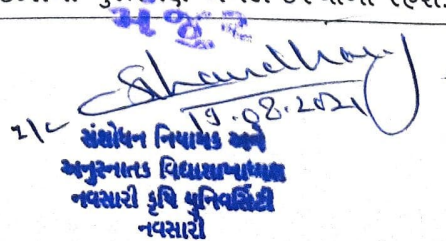 મંજૂર
19.08.2021
I/C
સંશોધન નિયામક અને
અનુસ્નાતક વિદ્યાશાખાધ્યક્ષ
નવસારી કૃષિ યુનિવર્સિટી
નવસારી